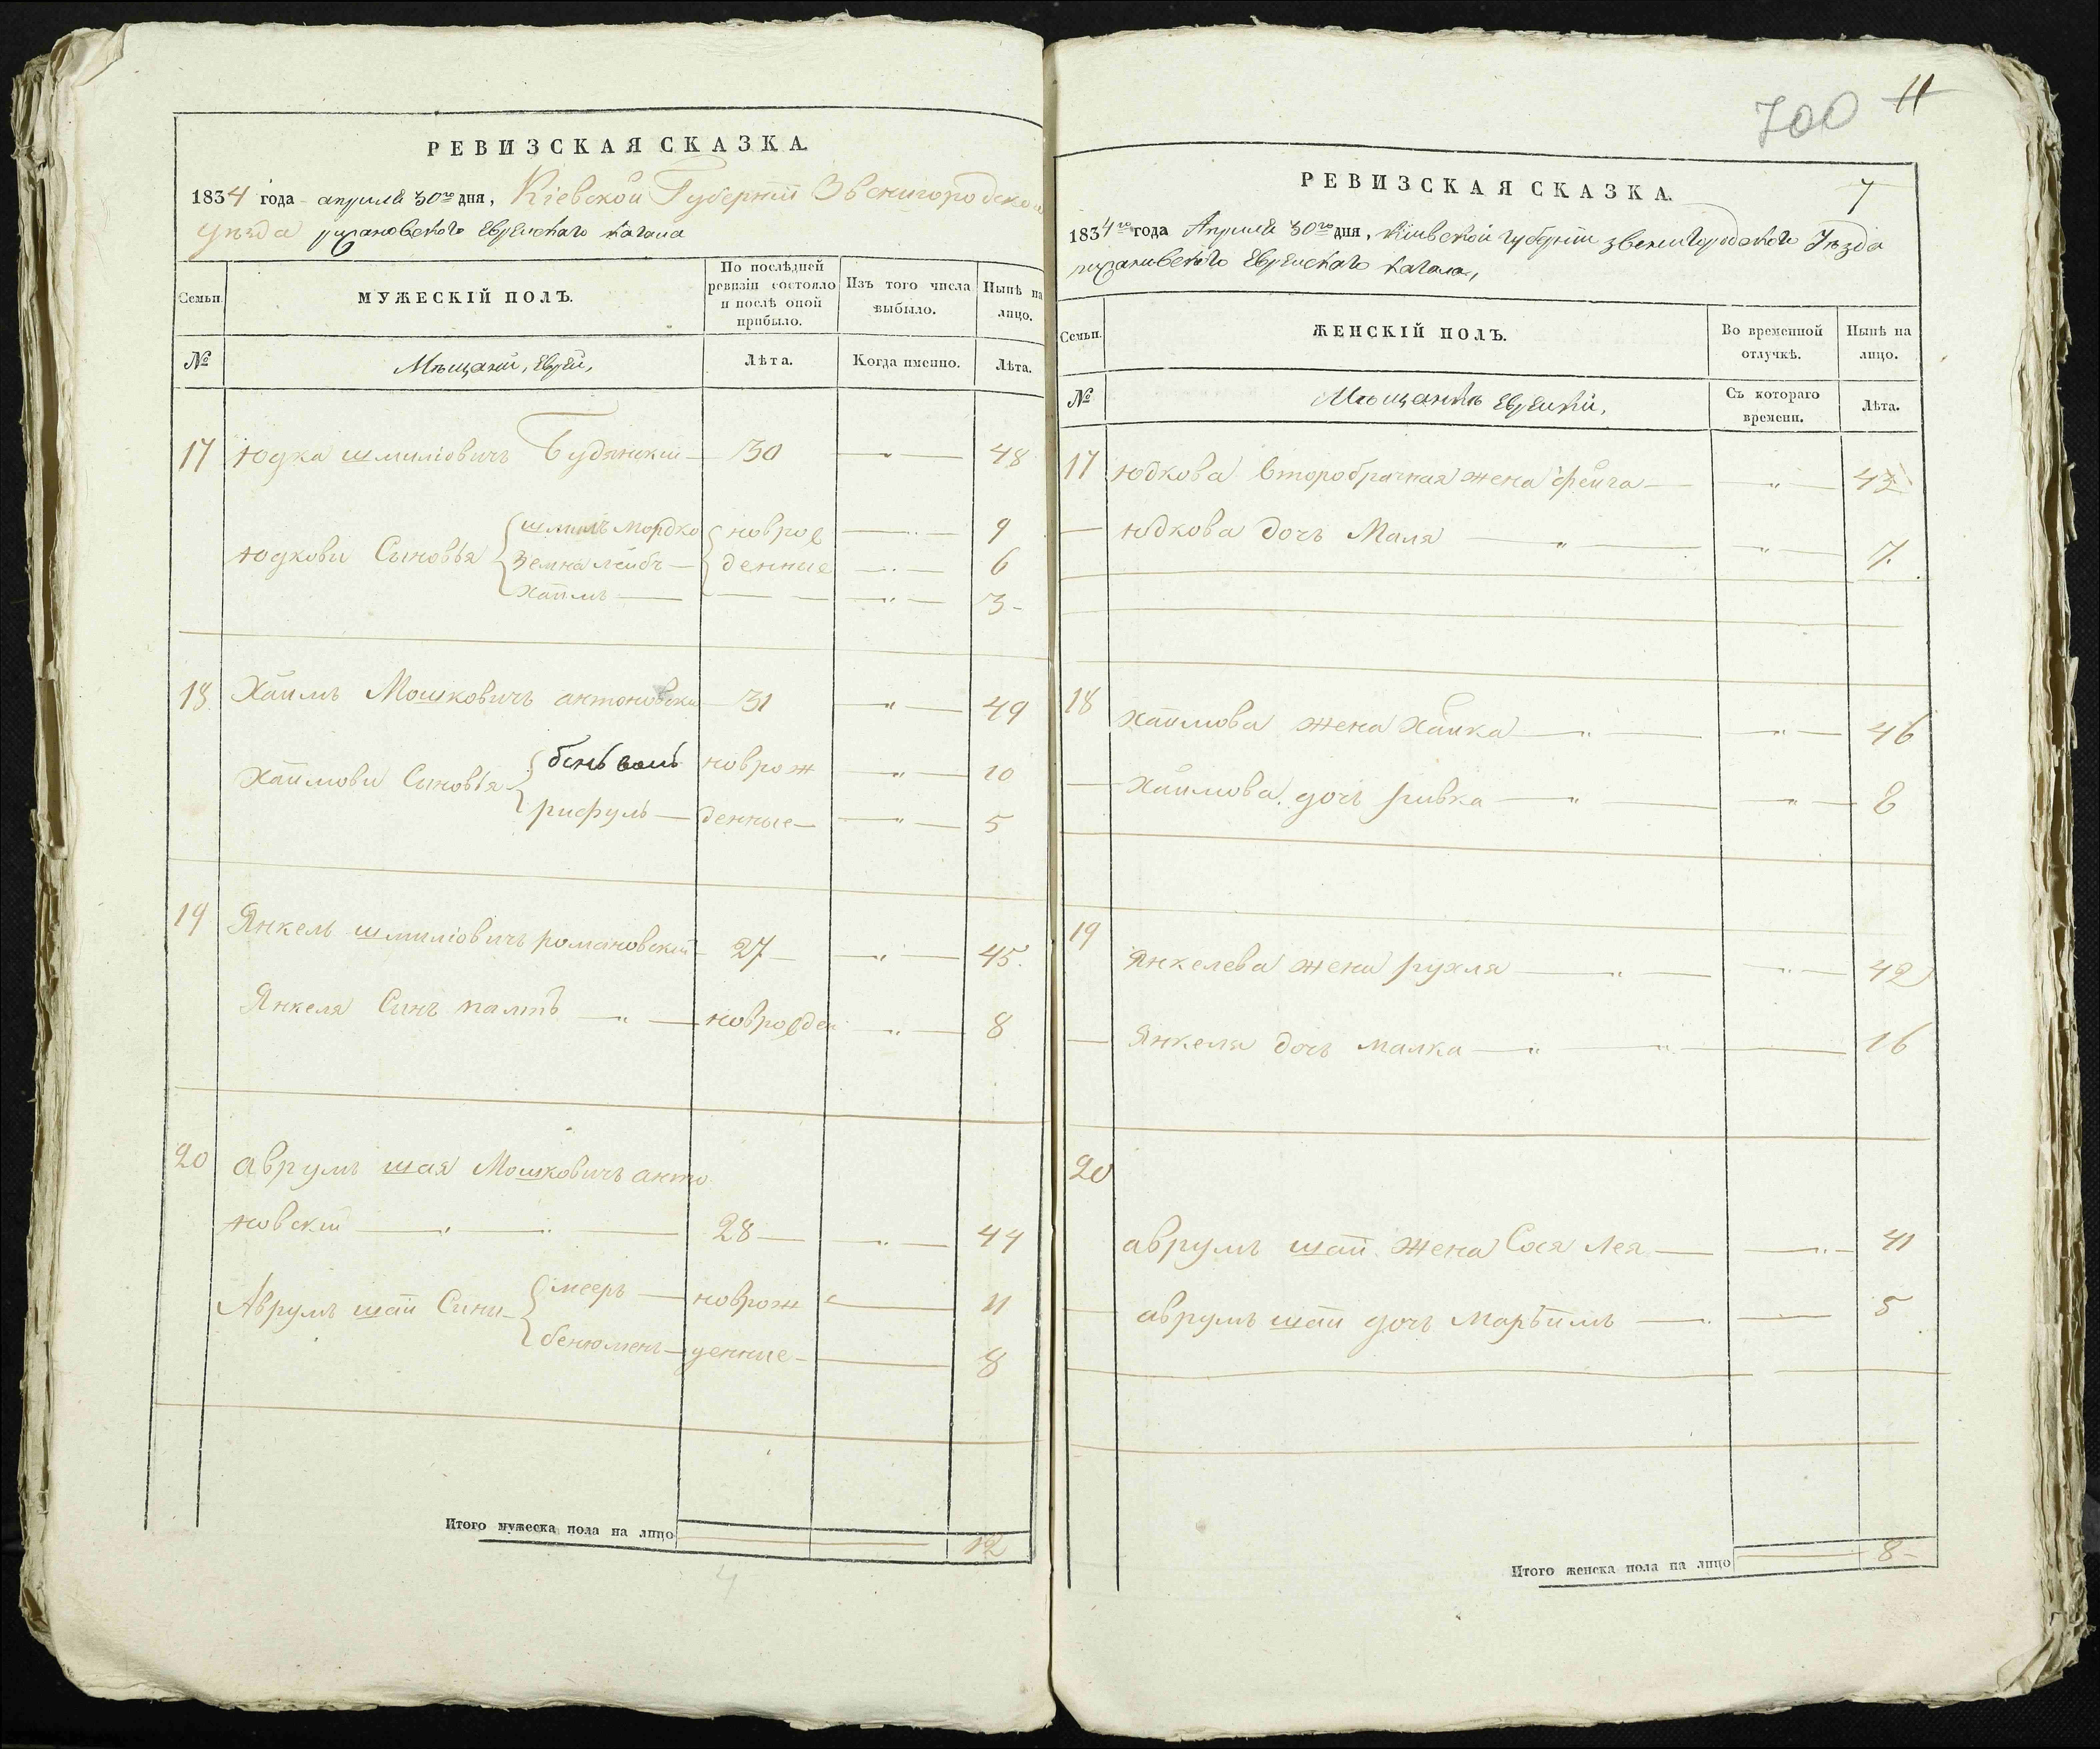 РЕВИЗСКАЯ СКАЗКА.
1834 года апреля 30го дня, Кіевской Губерніи Звенигородского
уѣзда рыжановского Еврейскаго кагала
Семьи.
МУЖЕСКІЙ ПОЛЪ.
По послѣдней ревизіи состояло и послѣ оной прибыло.
Изъ того числа выбыло.
Нынѣ на лицо.
№
Мѣщани, Евреи,
Лѣта.
Когда именно.
Лѣта.
17 Юдка шмиліовичъ Будянский 30 — " — 48
шмиль мордко новрож — 9
Юдкови Сыновья Земна лейбъ — денные — 6
Хаимъ — — " — 3
18 Хаимъ Мошковичъ антоновски 31 — " — 49
новрож — " — 10
Хаимови Сыновья
рифулъ — денные — " — 5
19 Янкель шмиліовичъ романовский 27 — " — 45.
Янкеля Синъ — " — новрожден — " — 8
20 аврумъ шая Мошковичъ анто
новский — " — 28 — " — 44
мееръ — новрож — 11
Аврумъ шаи Сини
бенюменъ — денние — 8
Итого мужеска пола на лицо 12
4
700 11
РЕВИЗСКАЯ СКАЗКА.
7
1834го года Апреля 30го дня, Кіивской губерніи звенигородского Уѣзда
рыжановского Еврейскаго кагала,
Семьи.
ЖЕНСКІЙ ПОЛЪ.
Во временной отлучкѣ.
Нынѣ на лицо.
№
Мѣщанкѣ Еврейки,
Съ котораго времени.
Лѣта.
17 Юдкова второбрачная жена фейга — " — 42
— Юдкова дочъ Маля — " — 7.
18 Хаимова жена Хаика — " — 46
— Хаимова дочъ ривка — " — 8
19 Янкелева жена рухля — " — 42
— Янкеля дочъ малка — " — 16
20
аврумъ шаи жена Сося лея — 41
— аврумъ шаи дочъ маръимъ — 5
Итого женска пола на лицо 8